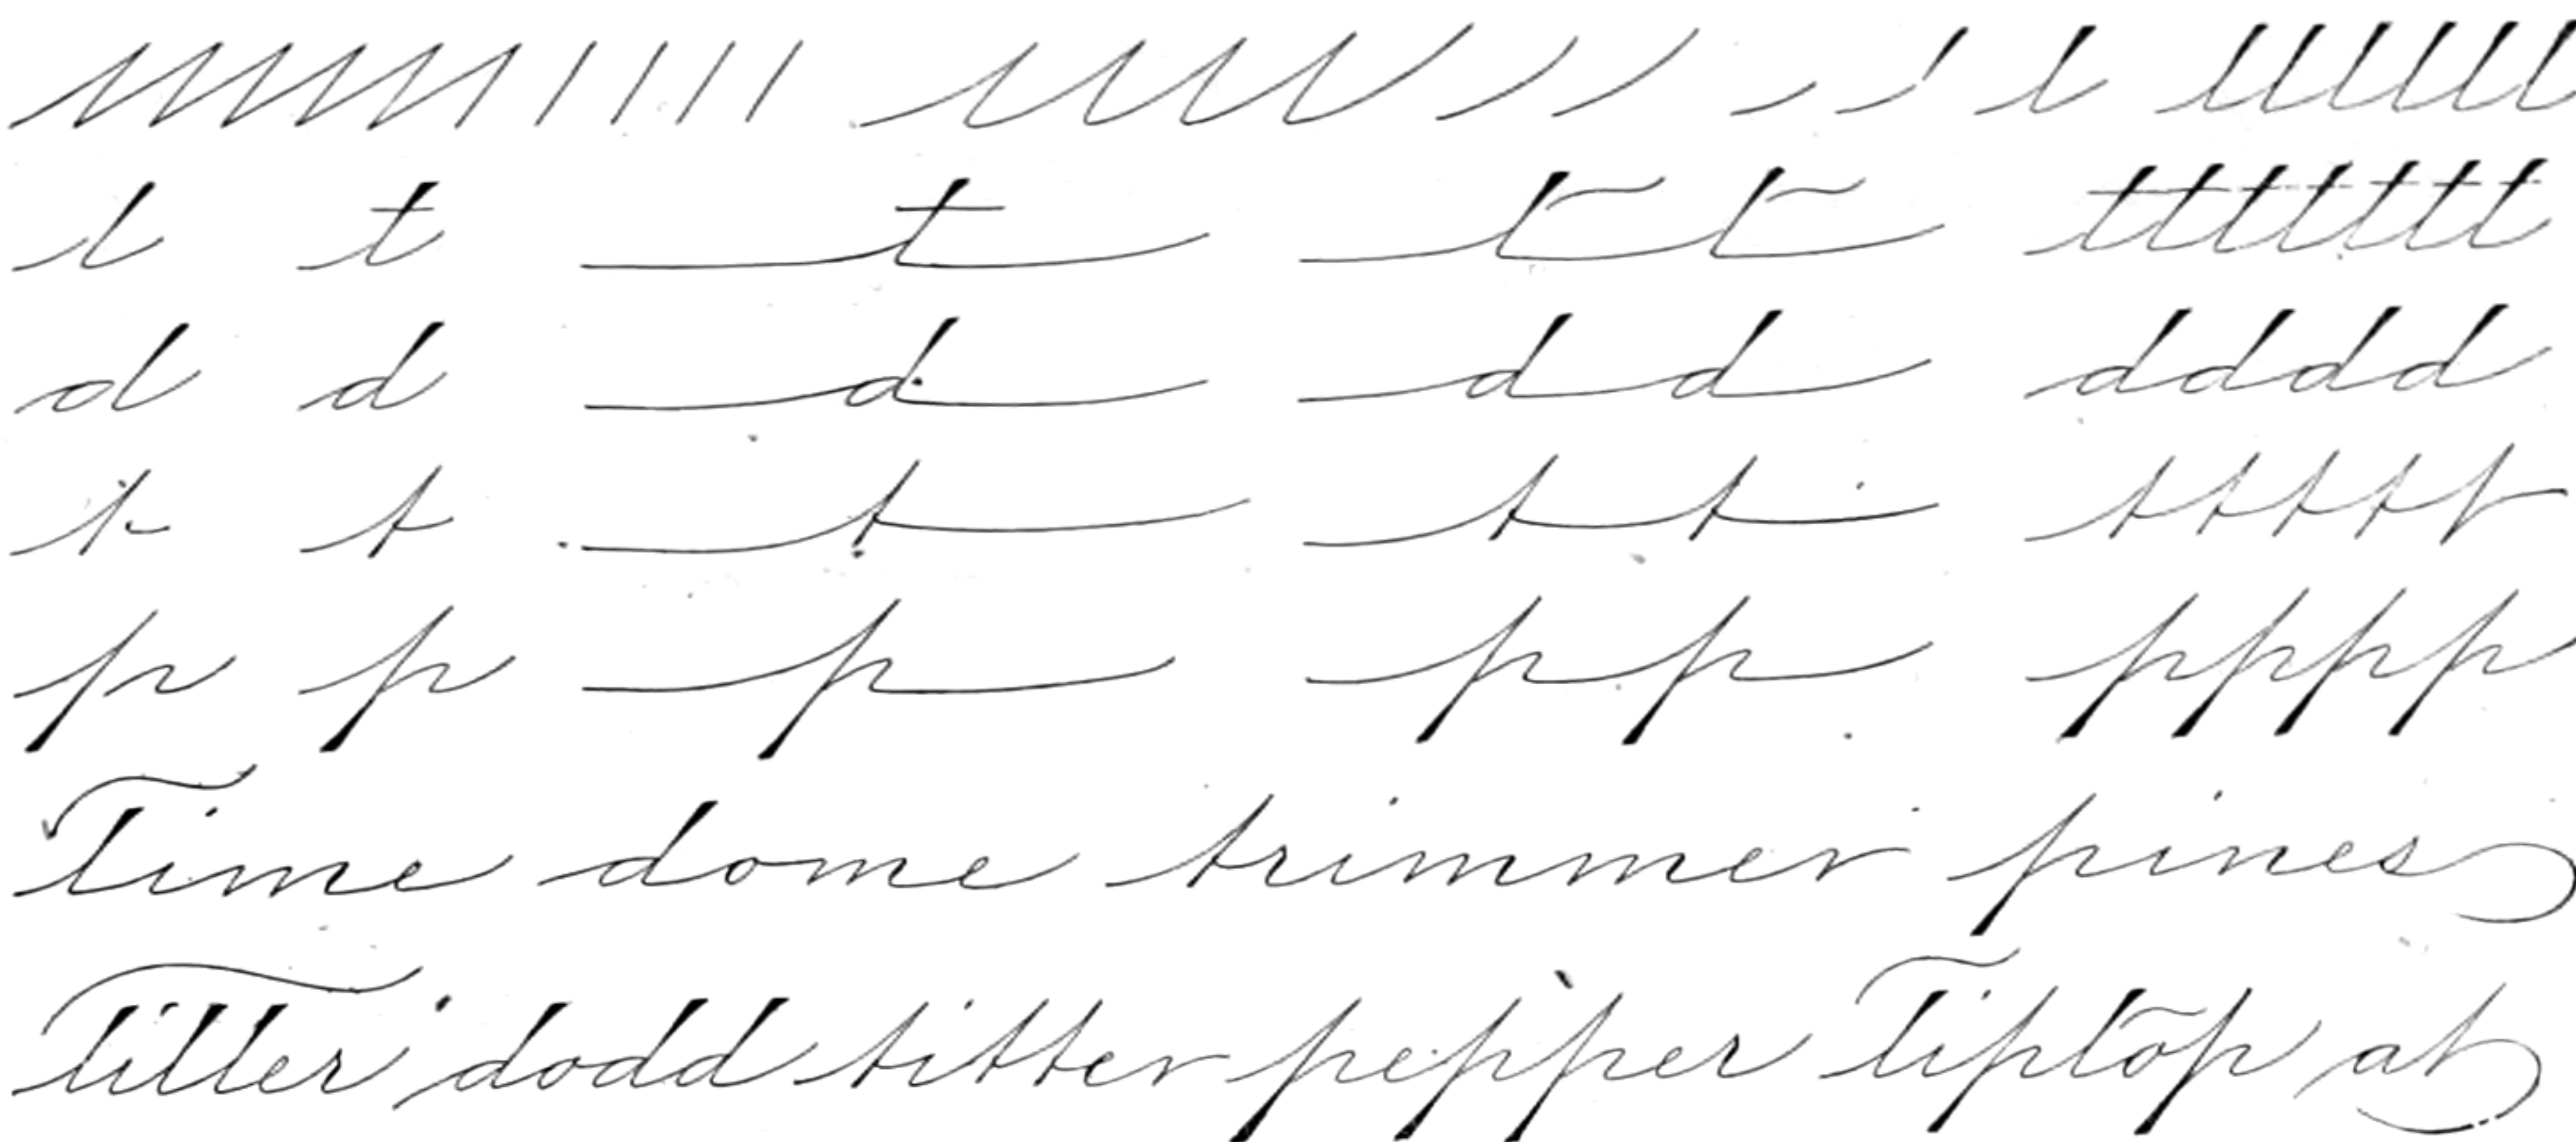 t t t t t t t t t t t t
d d d d d d d d d
t t t t t t t t t t
p p p p p p p p p
Time dome trimmer pines
Titter dodd titter pepper tiptop at